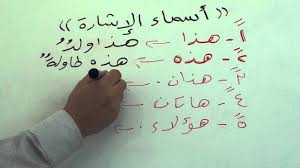 (( أسماء الإشارة ))
١- هذا ← هذا ولدٌ
٢- هذه ← هذه طاولةٌ
٣- هذان ←
٤- هاتان ←
٥- هؤلاء ←